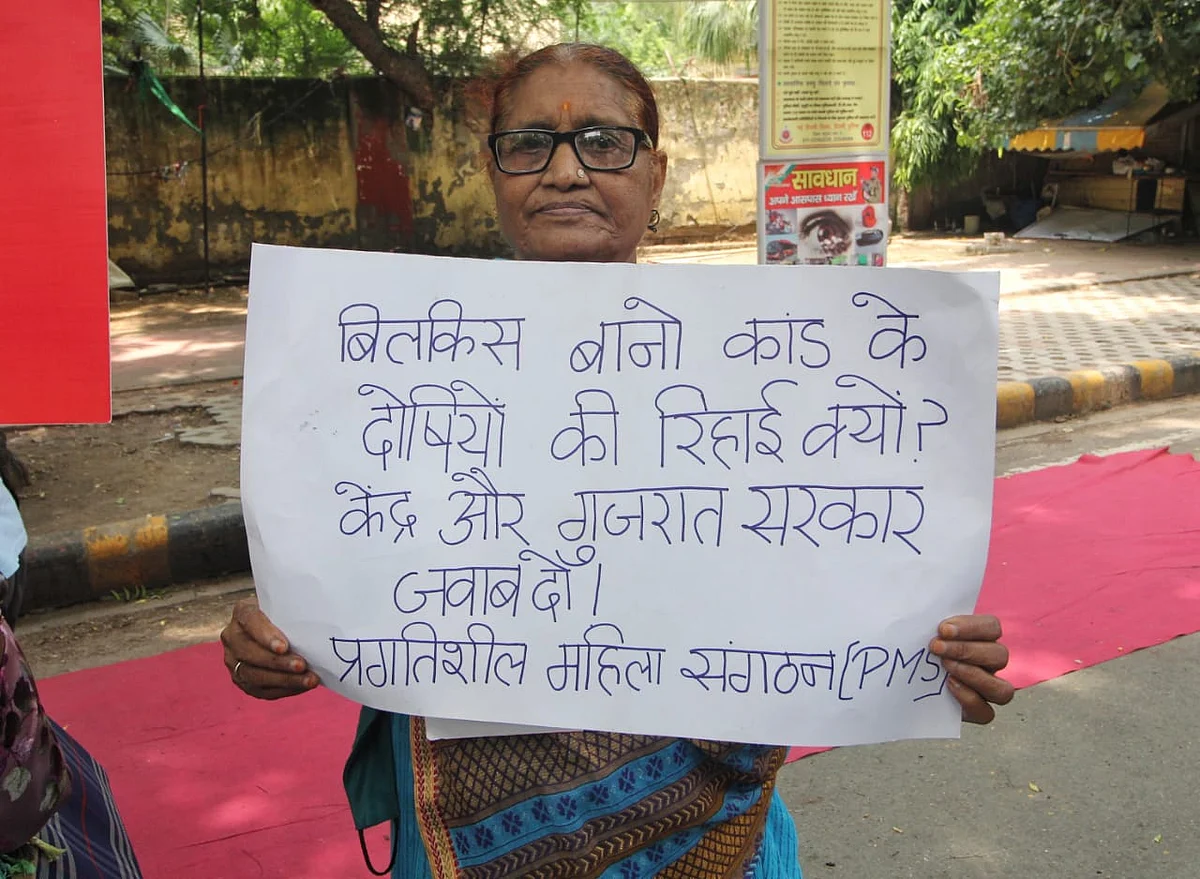 सावधान
अपने आसपास ध्यान रखें
बिलकिस बानो कांड के
दोषियों की रिहाई क्यों?
केंद्र और गुजरात सरकार
जवाब दों।
प्रगतिशील महिला संगठन (PMS)